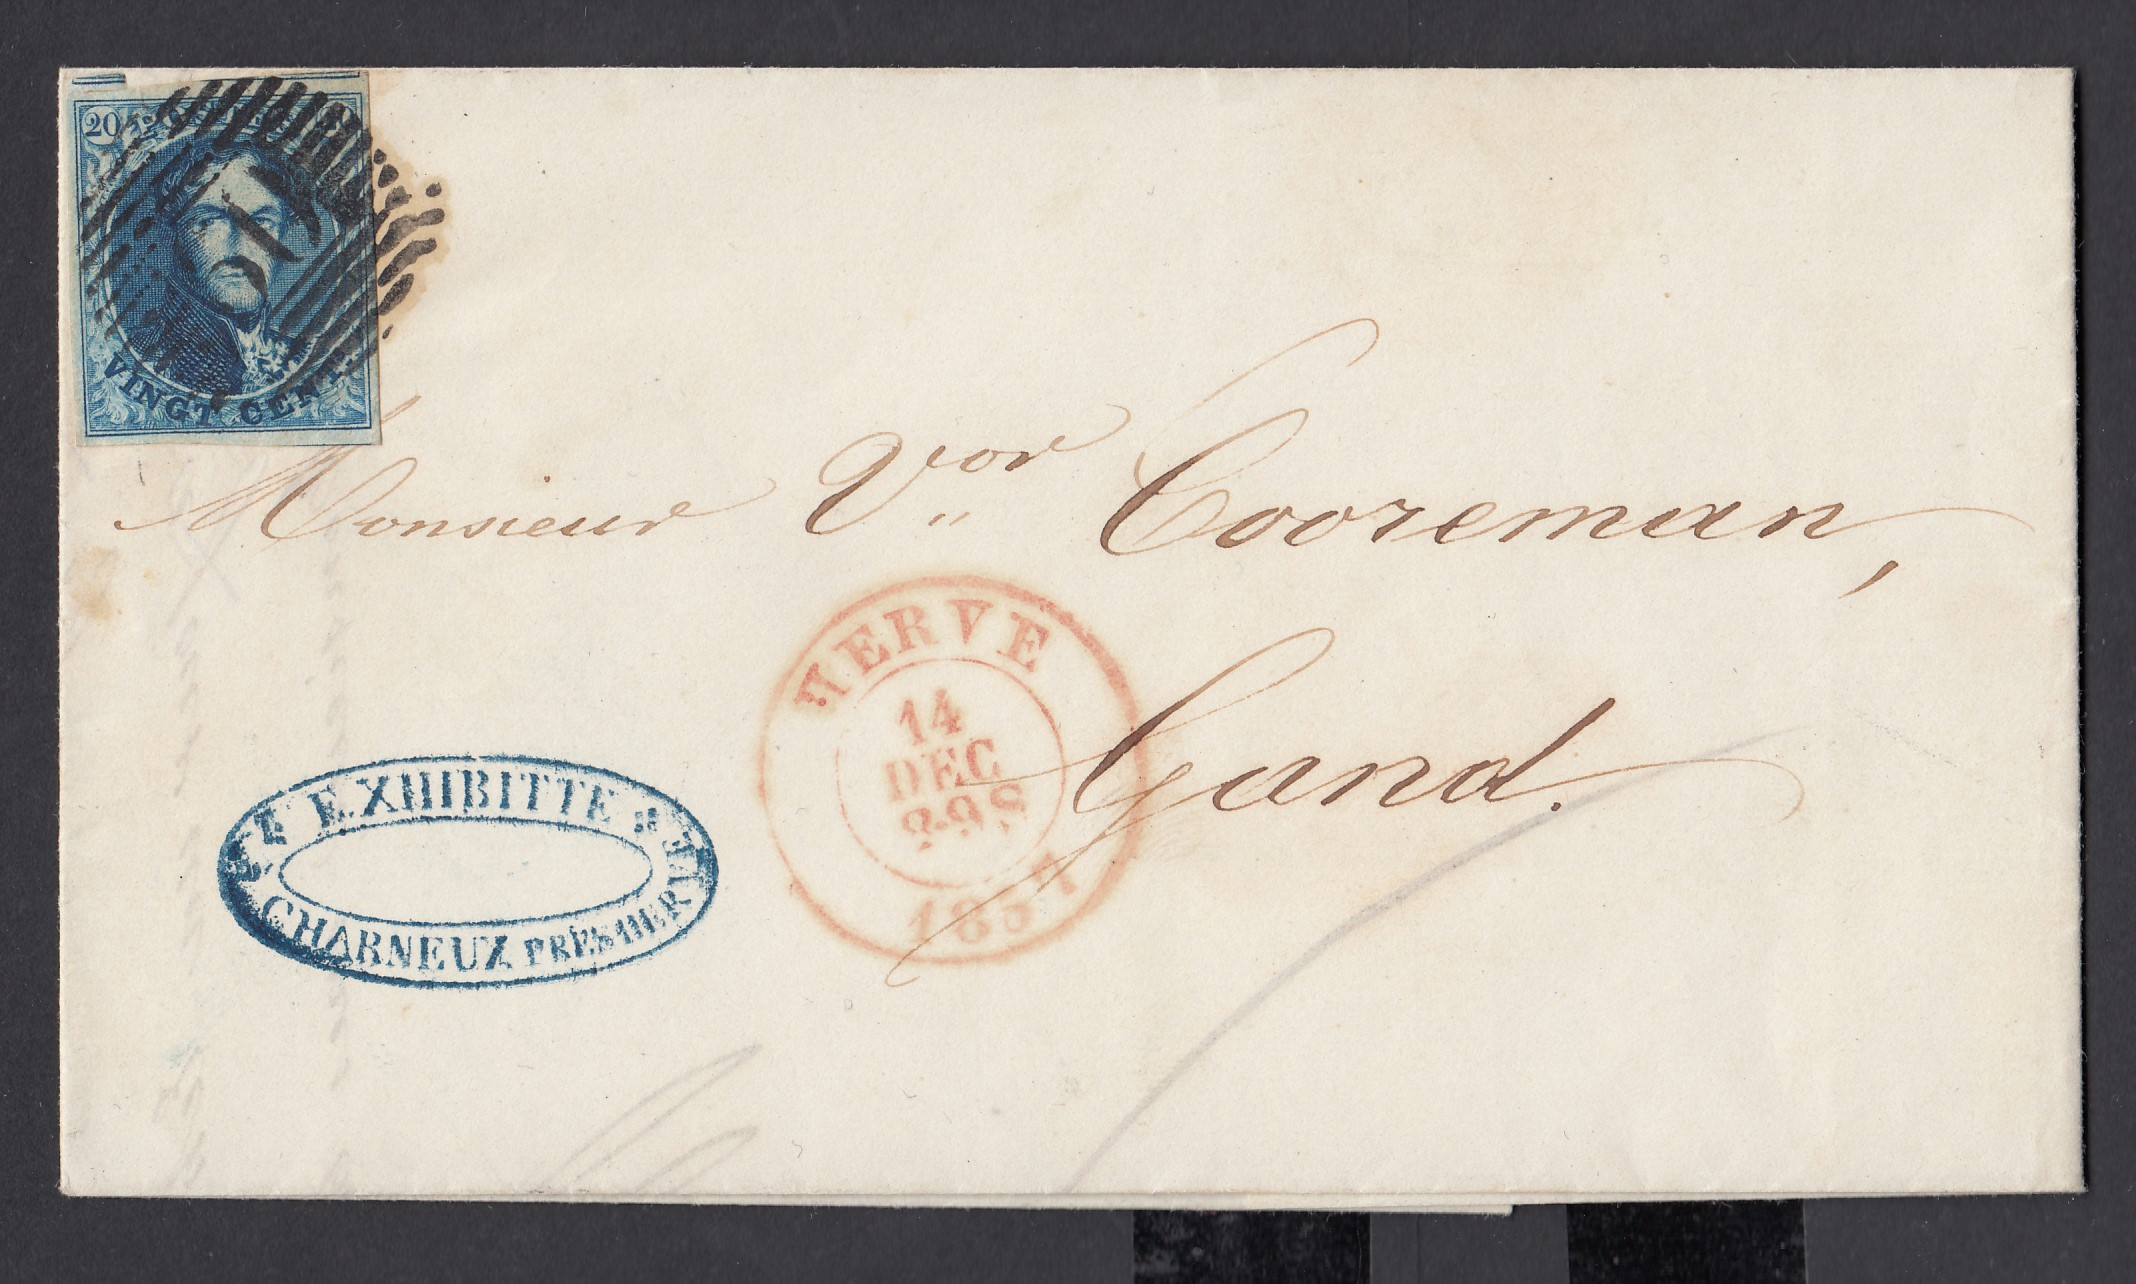 20
VINGT CENT
Monsieur Vor Cooreman,
HERVE
14
DEC
1857
Gand.
EXHIBITTE
CHARNEUX PRÈS HERVE